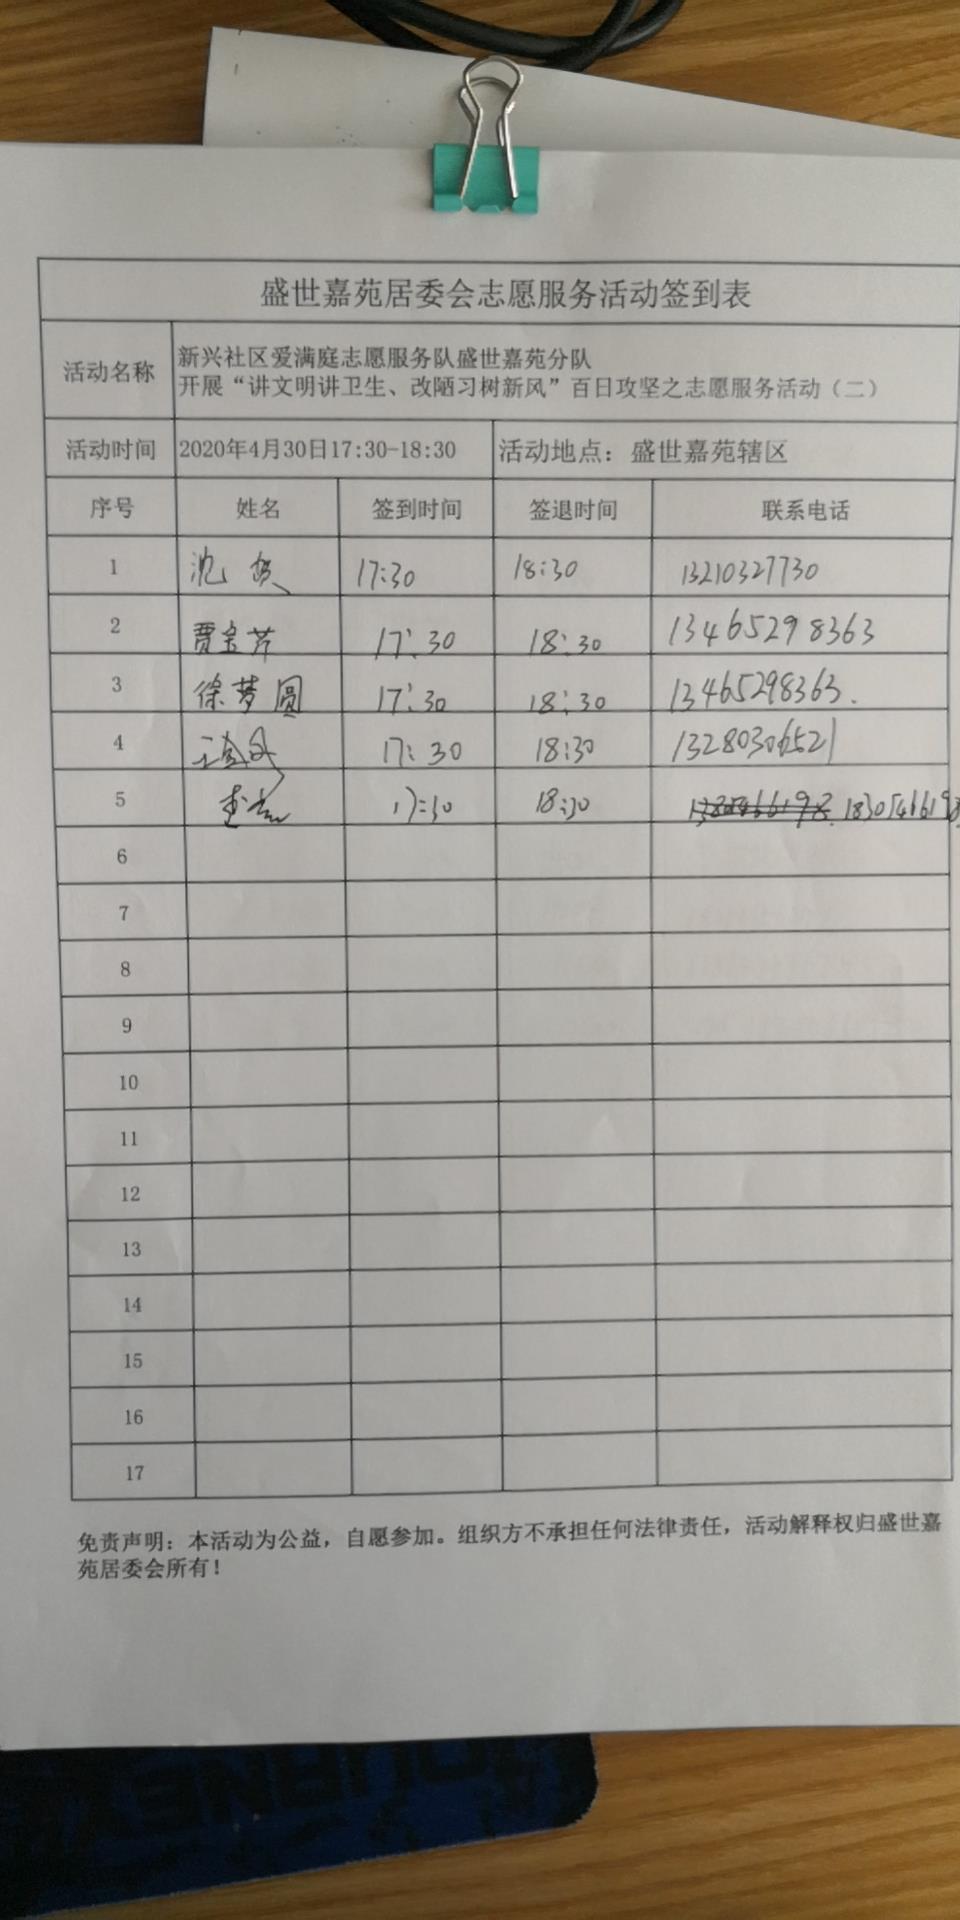 盛世嘉苑居委会志愿服务活动签到表
活动名称 新兴社区爱满庭志愿服务队盛世嘉苑分队
开展“讲文明讲卫生、改陋习树新风”百日攻坚之志愿服务活动（二）
活动时间 2020年4月30日17:30-18:30 活动地点：盛世嘉苑辖区
序号 姓名 签到时间 签退时间 联系电话
1 沈 17:30 18:30 13210327730
2 贾宝芹 17:30 18:30 13465298363
3 徐梦圆 17:30 18:30 13465298363.
4 17:30 18:30 13280306521
5 17:30 18:30 18305466198
6
7
8
9
10
11
12
13
14
15
16
17
免责声明：本活动为公益，自愿参加。组织方不承担任何法律责任，活动解释权归盛世嘉
苑居委会所有！